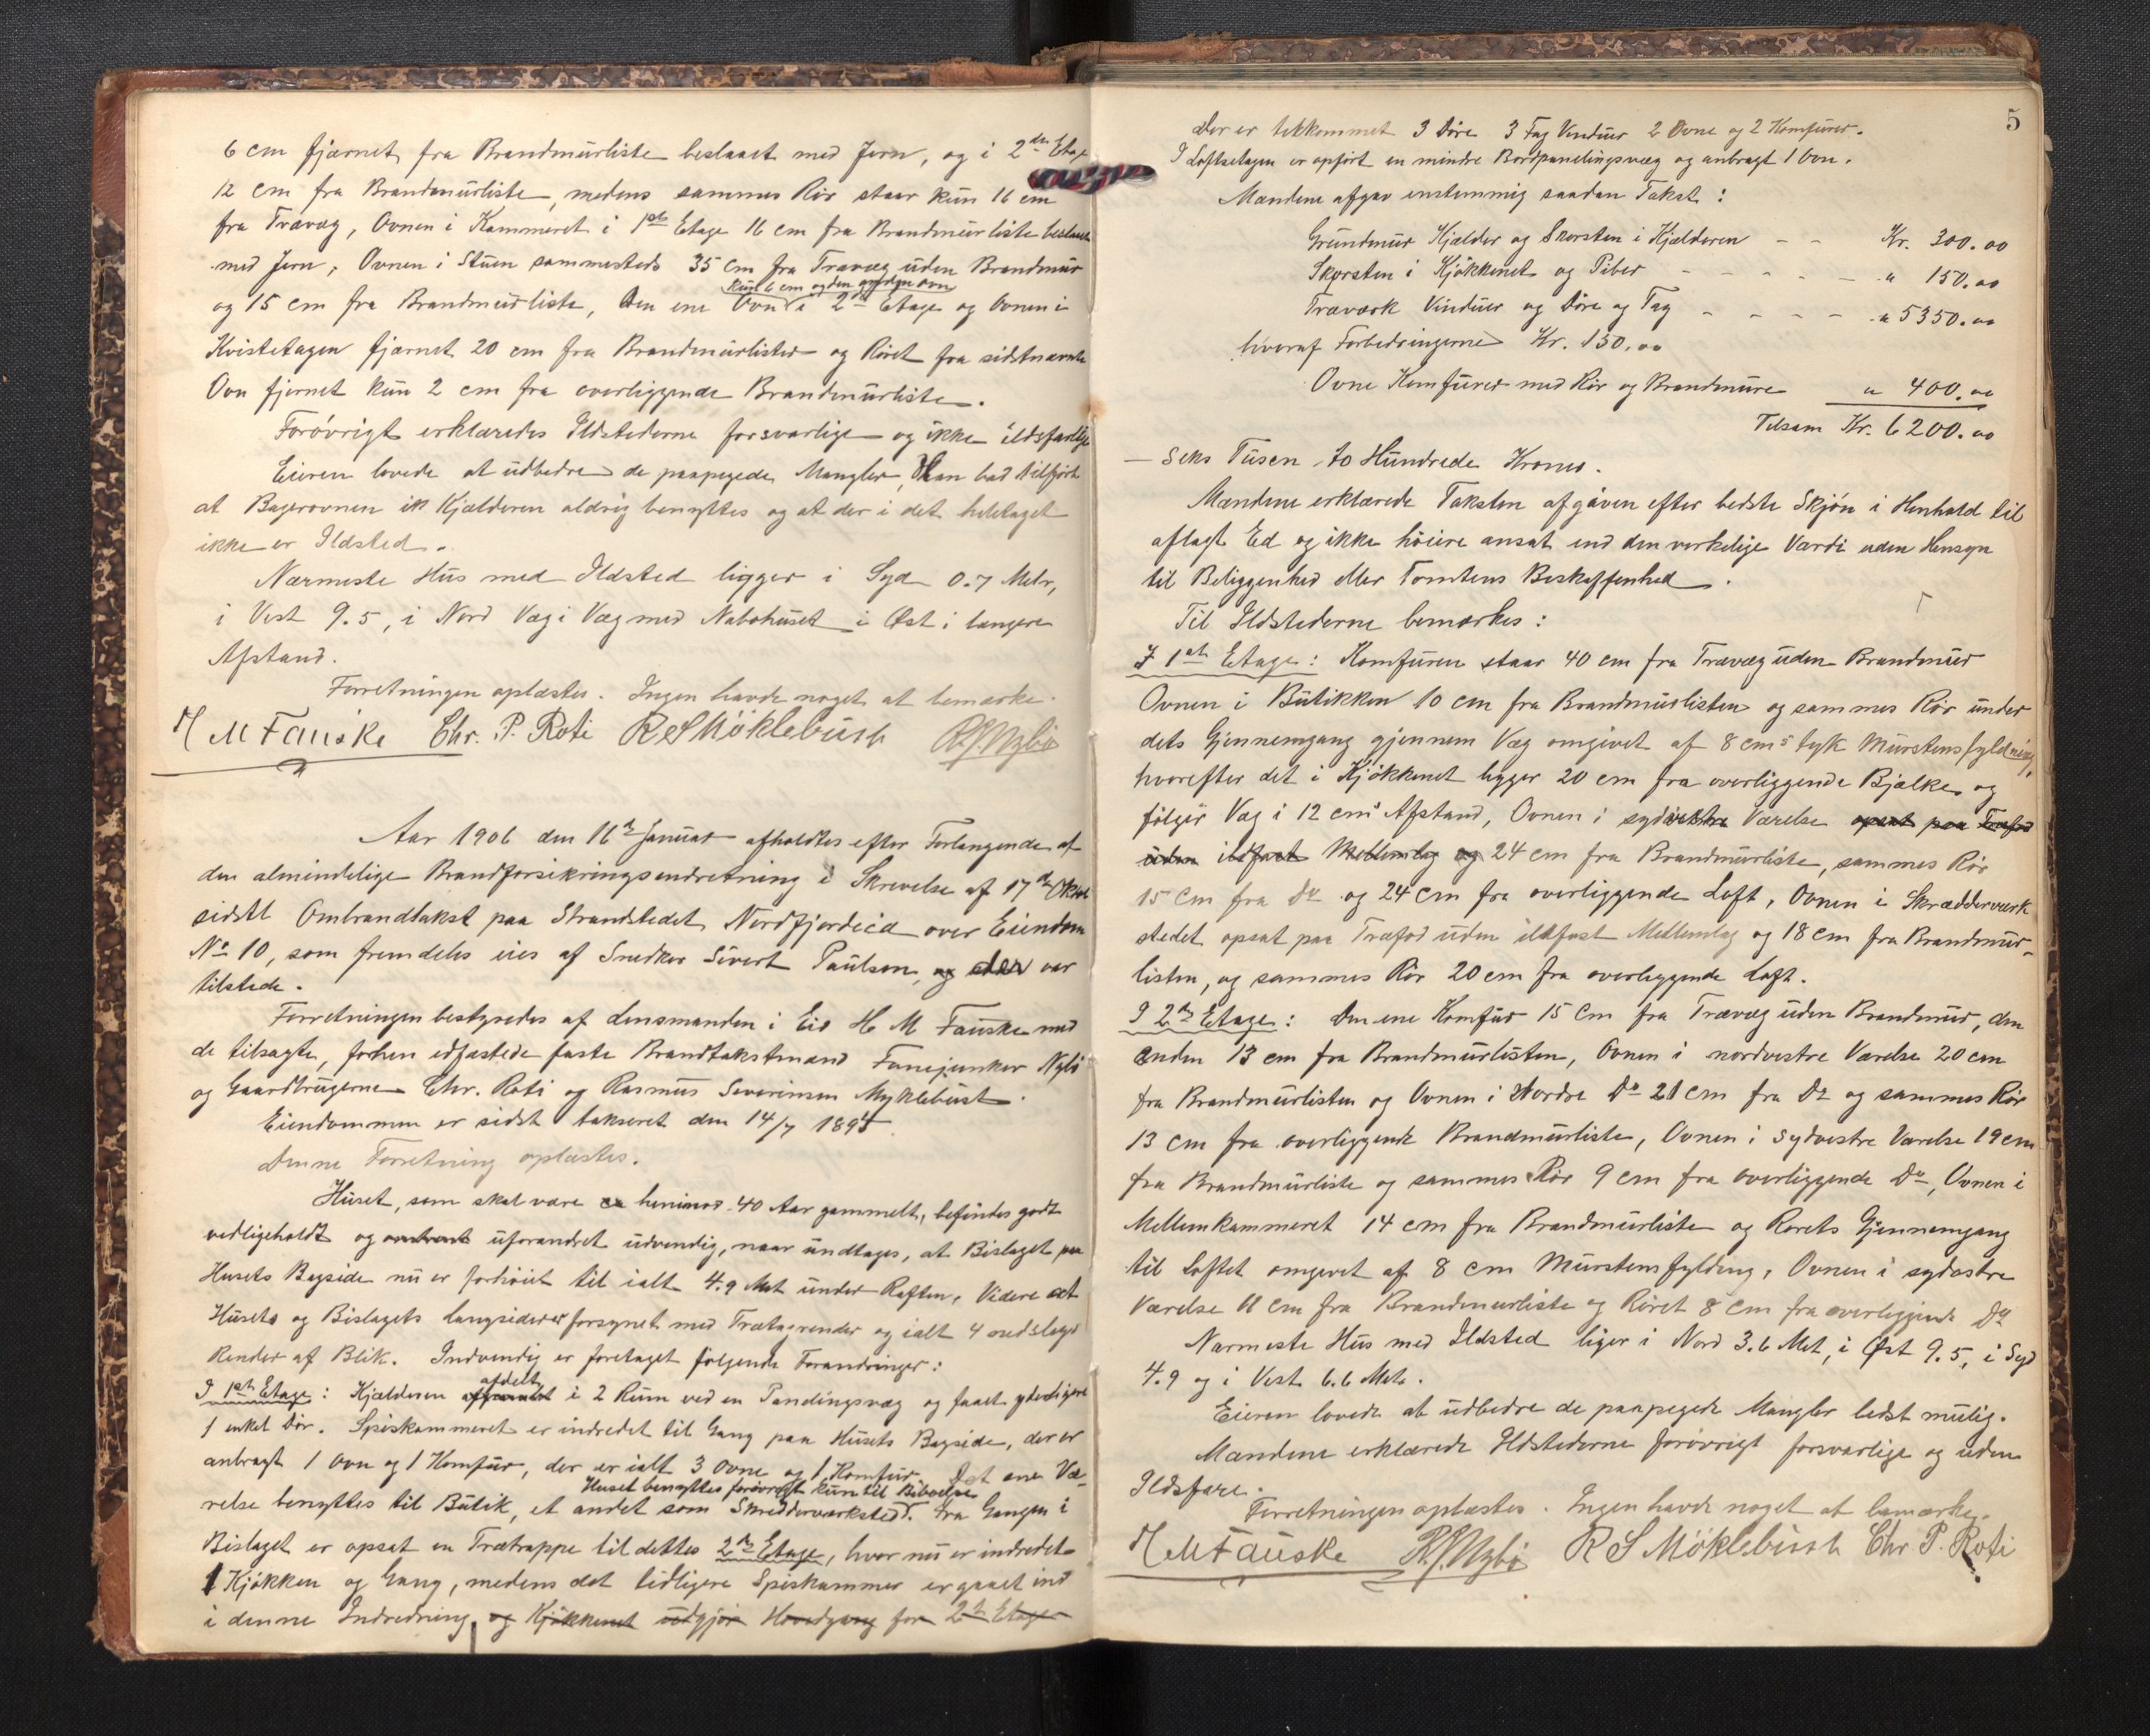 6 cm fjærnet fra Brandmurliste beslaaet med Jern, og i 2den Etage
12 cm fra Brandmurliste, medens sammes Rør staar kun 16 cm
fra Trævæg, Ovnen i Kammeret i 1ste Etage 16 cm fra Brandmurliste beslaaet
med Jern, Ovnen i Stuen sammesteds 35 cm fra Trævæg uden Brandmur
kun 6 cm og den anden ovn
og 15 cm fra Brandmurliste, den ene Ovn i 2den Etage og Ovnen i
Kvistetagen fjærnet 20 cm fra Brandmurlister og Røret fra sidstnævnte
Ovn fjernet kun 2 cm fra overliggende Brandmurliste.
Forøvrigt erklæredes Ildstederne forsvarlige og ikke ildsfarlige
Eieren lovede at udbedre de paapegede Mangler, Han bad tilført
at Bagerovnen i Kjælderen aldrig benyttes og at der i det heletaget
ikke er Ildsted.
Nærmeste Hus med Ildsted ligger i Syd 0.7 Metr,
i Vest 9.5, i Nord Væg i Væg med Nabohuset i Øst i længere
Afstand.
Forretningen oplæstes. Ingen havde noget at bemærke.
H M Fauske Chr. P. Roti R S Møklebust R. J. Nybø
Aar 1906 den 16de Januar afholdtes efter Forlangende af
den almindelige Brandforsikringsindretning i Skrivelse af 17de Oktob
sidstl Ombrandtakst paa Strandstedet Nordfjordeid over Eiendom
No 10, som fremdeles eies af Snedker Sivert Paulsen, og der var
tilstede.
Forretningen bestyredes af Lensmanden i Eid H M Fauske med
de tilsagte, forhen edfæstede faste Brandtakstmænd Fanejunker Nybø
og Gaardbrugerne Chr. Roti og Rasmus Severinsen Myklebust.
Eiendommen er sidst takseret den 14/7 1895
Denne Forretning oplæstes.
Huset, som skal være ca henimod 40 Aar gammelt, befindes godt
vedligeholdt og omtrent uforandret udvendig, naar undtages, at Bislaget paa
Husets Bagside nu er forhøiet til ialt 4.9 Met under Raften. Videre at
Husets og Bislagets Langsider er forsynet med Trætagrender og ialt 4 nedslags
Render af Blik. Indvendig er foretaget følgende Forandringer:
afdelt
I 1ste Etage: Kjælderen i 2 Rum ved en Panelingsvæg og faaet yderligere
1 enkel Dør. Spiskammeret er indredet til Gang paa Husets Bagside, der er
anbragt 1 Ovn og 1 Komfur, der er ialt 3 Ovne og 1 Komfur. Det ene Væ-
Huset benyttes forøvrigt kun til Beboelse
relse benyttes til Butik, et andet som Skredderværksted. Fra Gangen i
Bislaget er opsat en Trætrappe til dettes 2den Etage, hvor nu er indredet
1 Kjøkken og Gang, medens det tidligere Spiskammer er gaaet ind
i denne Indredning og Kjøkkenet udgjør Hovedgang for 2den Etage
5
Der er tilkommet 3 Døre 3 Fag Vinduer 2 Ovne og 2 Komfurer.
I Loftsetagen er opført en mindre Bordpanelingsvæg og anbragt 1 Ovn.
Mændene afgav enstemmig saadan Takst:
Grundmur Kjælder og Skorsten i Kjælderen - - Kr. 300.00
Skorsten i Kjøkkenet og Piber - - - - - " 150.00
Træværk Vinduer og Døre og Tag - - - - " 5350.00
hvoraf Forbedringerne Kr. 150.00
Ovne Komfurer med Rør og Brandmure " 400.00
Tilsam Kr. 6200.00
— Seks Tusen to Hundrede Kroner.
Mændene erklærede Taksten afgiven efter bedste Skjøn i Henhold til
aflagt Ed og ikke høiere ansat end den verkelige Værdi uden Hensyn
til Beliggenhed eller Tomtens Beskaffenhed.
Til Ildstederne bemærkes:
I 1ste Etage: Komfuren staar 40 cm fra Trævæg uden Brandmur
Ovnen i Butikken 10 cm fra Brandmurlisten og sammes Rør under
dets Gjennemgang gjennem Væg omgivet af 8 cms tyk Murstensfyldning,
hvorefter det i Kjøkkenet ligger 20 cm fra overliggende Bjælke og
følger Væg i 12 cms Afstand, Ovnen i sydvestre Værelse opsat paa Træfod
uden ildfast Mellemlag og 24 cm fra Brandmurliste, sammes Rør
15 cm fra Do og 24 cm fra overliggende Loft, Ovnen i Skrædderværk
stedet opsat paa Træfod uden ildfast Mellemlag og 18 cm fra Brandmur-
listen, og sammes Rør 20 cm fra overliggende Loft.
I 2den Etage: Den ene Komfur 15 cm fra Trævæg uden Brandmur, den
anden 13 cm fra Brandmurlisten, Ovnen i nordvestre Værelse 20 cm
fra Brandmurlisten og Ovnen i Nordre Do 21 cm fra Do og sammes Rør
13 cm fra overliggende Brandmurliste, Ovnen i Sydvestre Værelse 19 cm
fra Brandmurliste og sammes Rør 9 cm fra overliggende Do, Ovnen i
Mellemkammeret 14 cm fra Brandmurliste og Rørets Gjennemgang
til Loftet omgivet af 8 cm Murstensfylding, Ovnen i sydøstre
Værelse 11 cm fra Brandmurliste og Røret 8 cm fra overliggende Do
Nærmeste Hus med Ildsted liger i Nord 3.6 Met, i Øst 9.5, i Syd
4.9 og i Vest 6.6 Met.
Eieren lovede at udbedre de paapegede Mangler bedst mulig.
Mændene erklærede Ildstederne forøvrigt forsvarlige og uden
Ildsfare.
Forretningen oplæstes. Ingen havde noget at bemærke.
H M Fauske R. J. Nybø R S Møklebust Chr P. Roti